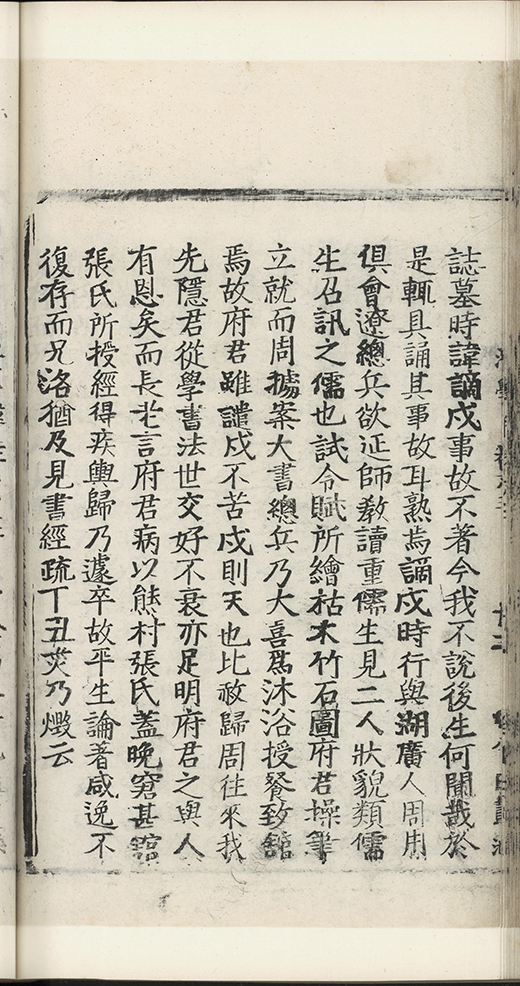 誌墓時諱謫戍事故不著今我不說後生何聞哉於
是輒具誦其事故耳熟焉謫戍時行與湖廣人周用
俱會遼總兵欲延師教讀重儒生見二人狀貌類儒
生召訊之儒也試令賦所繪枯木竹石圖府君操筆
立就而周據案大書總兵乃大喜爲沐浴授餐致館
焉故府君雖譴戍不苦戍則天也比赦歸周往來我
先隱君從學書法世交好不衰亦足明府君之與人
有恩矣而長老言府君病以熊村張氏蓋晚窘甚館
張氏所授經得疾輿歸乃遽卒故平生論著咸逸不
復存而兄洛猶及見書經疏丁丑災乃燬云